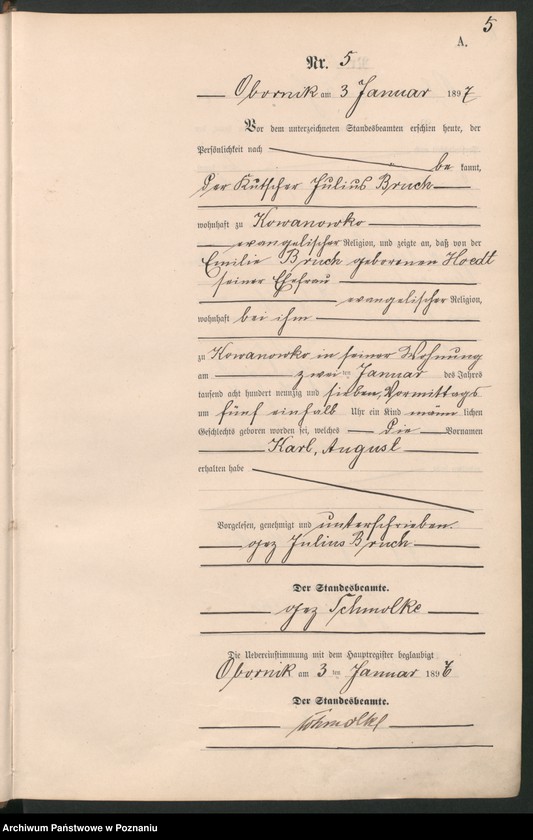 5
A.
Nr. 5
Obornik am 3 Januar 1897
Vor dem unterzeichneten Standesbeamten erschien heute, der
Persönlichkeit nach
be kannt,
der Kutscher Julius Bruch
wohnhaft zu Kowanowko
evangelischer Religion, und zeigte an, daß von der
Emilie Bruch geborenen Hoedt
seiner Ehefrau
evangelischer Religion,
wohnhaft bei ihm
zu Kowanowko in seiner Wohnung
am zwei ten Januar des Jahres
tausend acht hundert neunzig und sieben, Vormittags
um fünf einhalb Uhr ein Kind männ lichen
Geschlechts geboren worden sei, welches die Vornamen
Karl, August
erhalten habe
Vorgelesen, genehmigt und unterschrieben.
gez Julius Bruch
Der Standesbeamte.
gez Schmolke
Die Uebereinstimmung mit dem Hauptregister beglaubigt
Obornik am 3 ten Januar 189
Der Standesbeamte.
Schmolke
Archiwum Państwowe w Poznaniu